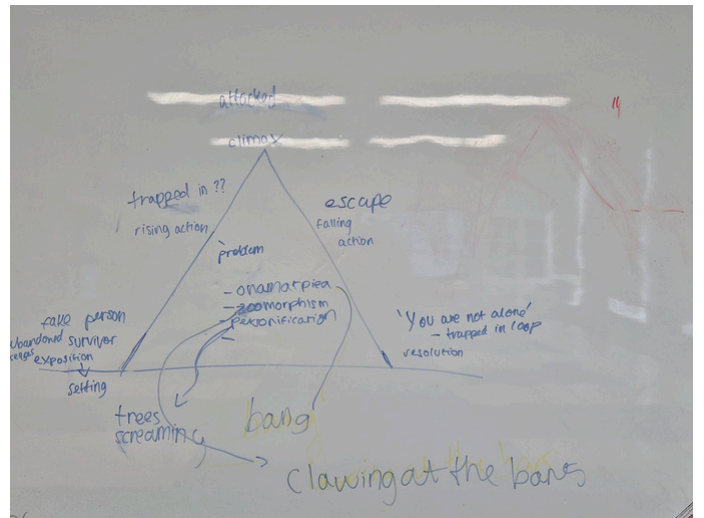 attacked
climax
trapped in ??
rising action
problem
escape
falling
action
- onamatpiea
- zoomorphism
- personification
-
fake person
abandoned survivor
exposition
setting
'You are not alone'
- trapped in loop
resolution
trees
screaming
bang
clawing at the bars